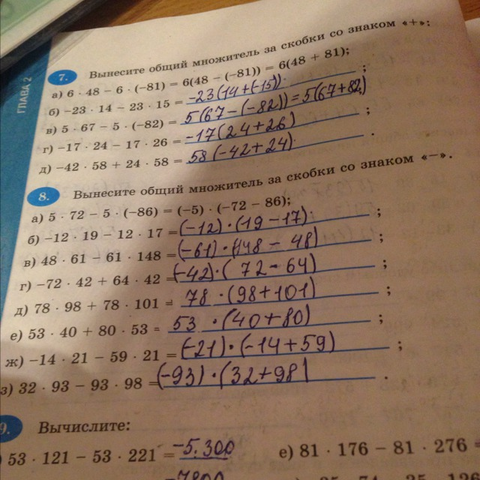 ГЛАВА 2
7. Вынесите общий множитель за скобки со знаком «+»:
а) 6 · 48 − 6 · (−81) = 6(48 − (−81)) = 6(48 + 81);
б) −23 · 14 − 23 · 15 = −23(14+(−15)). ;
в) 5 · 67 − 5 · (−82) = 5(67−(−82))=5(67+82)
г) −17 · 24 − 17 · 26 = −17(24+26) ;
д) −42 · 58 + 24 · 58 = 58(−42+24) .
8. Вынесите общий множитель за скобки со знаком «−».
а) 5 · 72 − 5 · (−86) = (−5) · (−72 − 86);
б) −12 · 19 − 12 · 17 = (−12)·(19−17) ;
в) 48 · 61 − 61 · 148 = (−61)·(148 − 48) ;
г) −72 · 42 + 64 · 42 = (−42)·(72−64) ;
д) 78 · 98 + 78 · 101 = 78 ·(98+101) ;
е) 53 · 40 + 80 · 53 = 53 ·(40+80) ;
ж) −14 · 21 − 59 · 21 = (−21)·(−14+59) ;
з) 32 · 93 − 93 · 98 = (−93)·(32+98) .
9. Вычислите:
53 · 121 − 53 · 221 = −5.300
е) 81 · 176 − 81 · 276 =